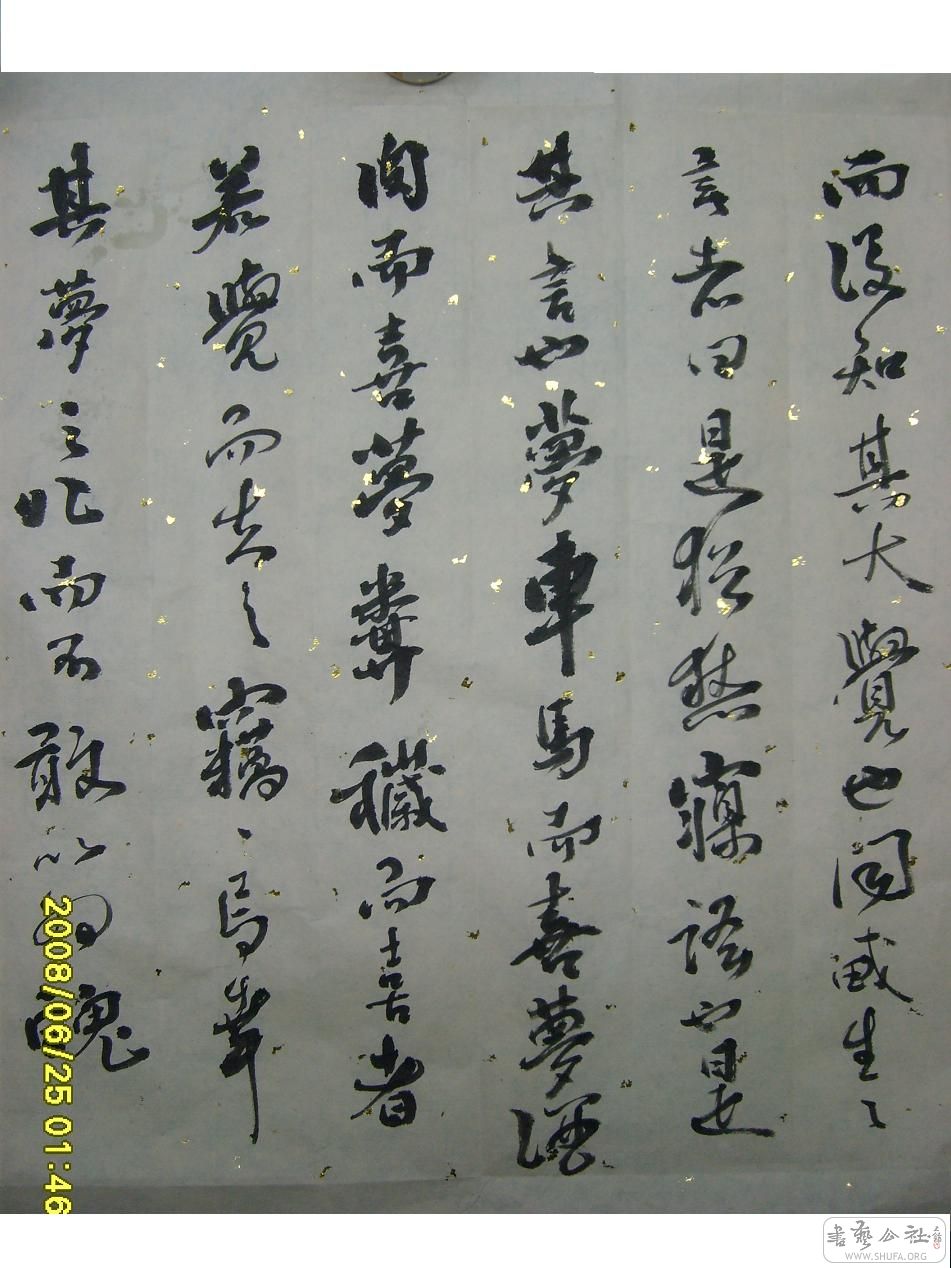 而後知其大覺也聞咸生之
言者曰是猶愁寱語也是
其言也夢車馬而喜夢酒
肉而喜夢糞穢而喜者
若覺而失之竊、焉
其夢之非而不敢以自愧
2008/06/25 01:46
書藝公社
WWW.SHUFA.ORG